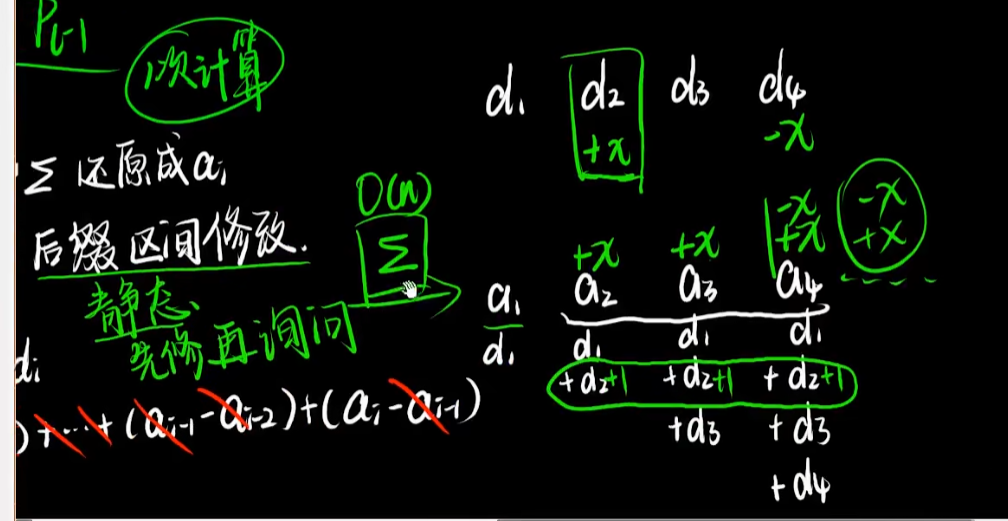 Pᵢ₋₁
1次计算
Σ 还原成aᵢ
后缀区间修改.
静态
先修再询问
dᵢ
)+…+(aᵢ₋₁-aᵢ₋₂)+(aᵢ-aᵢ₋₁)
O(n)
Σ
d₁ d₂ d₃ d₄
+x -x
-x -x
+x +x +x +x
a₁ a₂ a₃ a₄
d₁ d₁ d₁ d₁
+d₂+1 +d₂+1 +d₂+1
+d₃ +d₃
+d₄